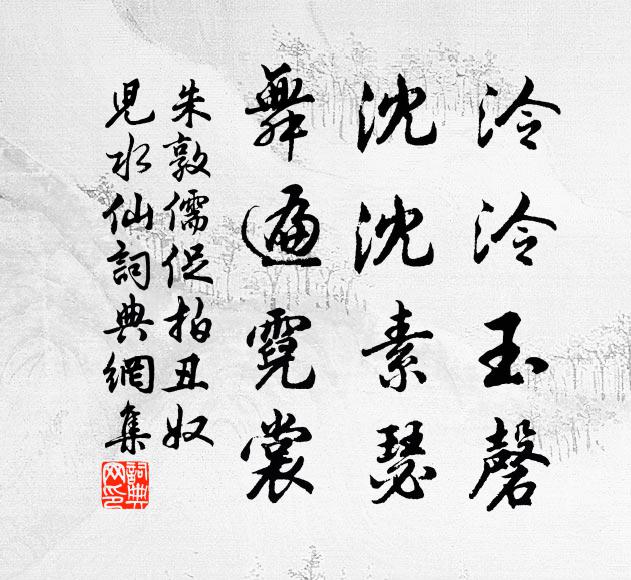 泠泠玉磬
沈沈素瑟
舞遍霓裳
朱敦儒促拍丑奴
児水仙詞典網集
詞典网印